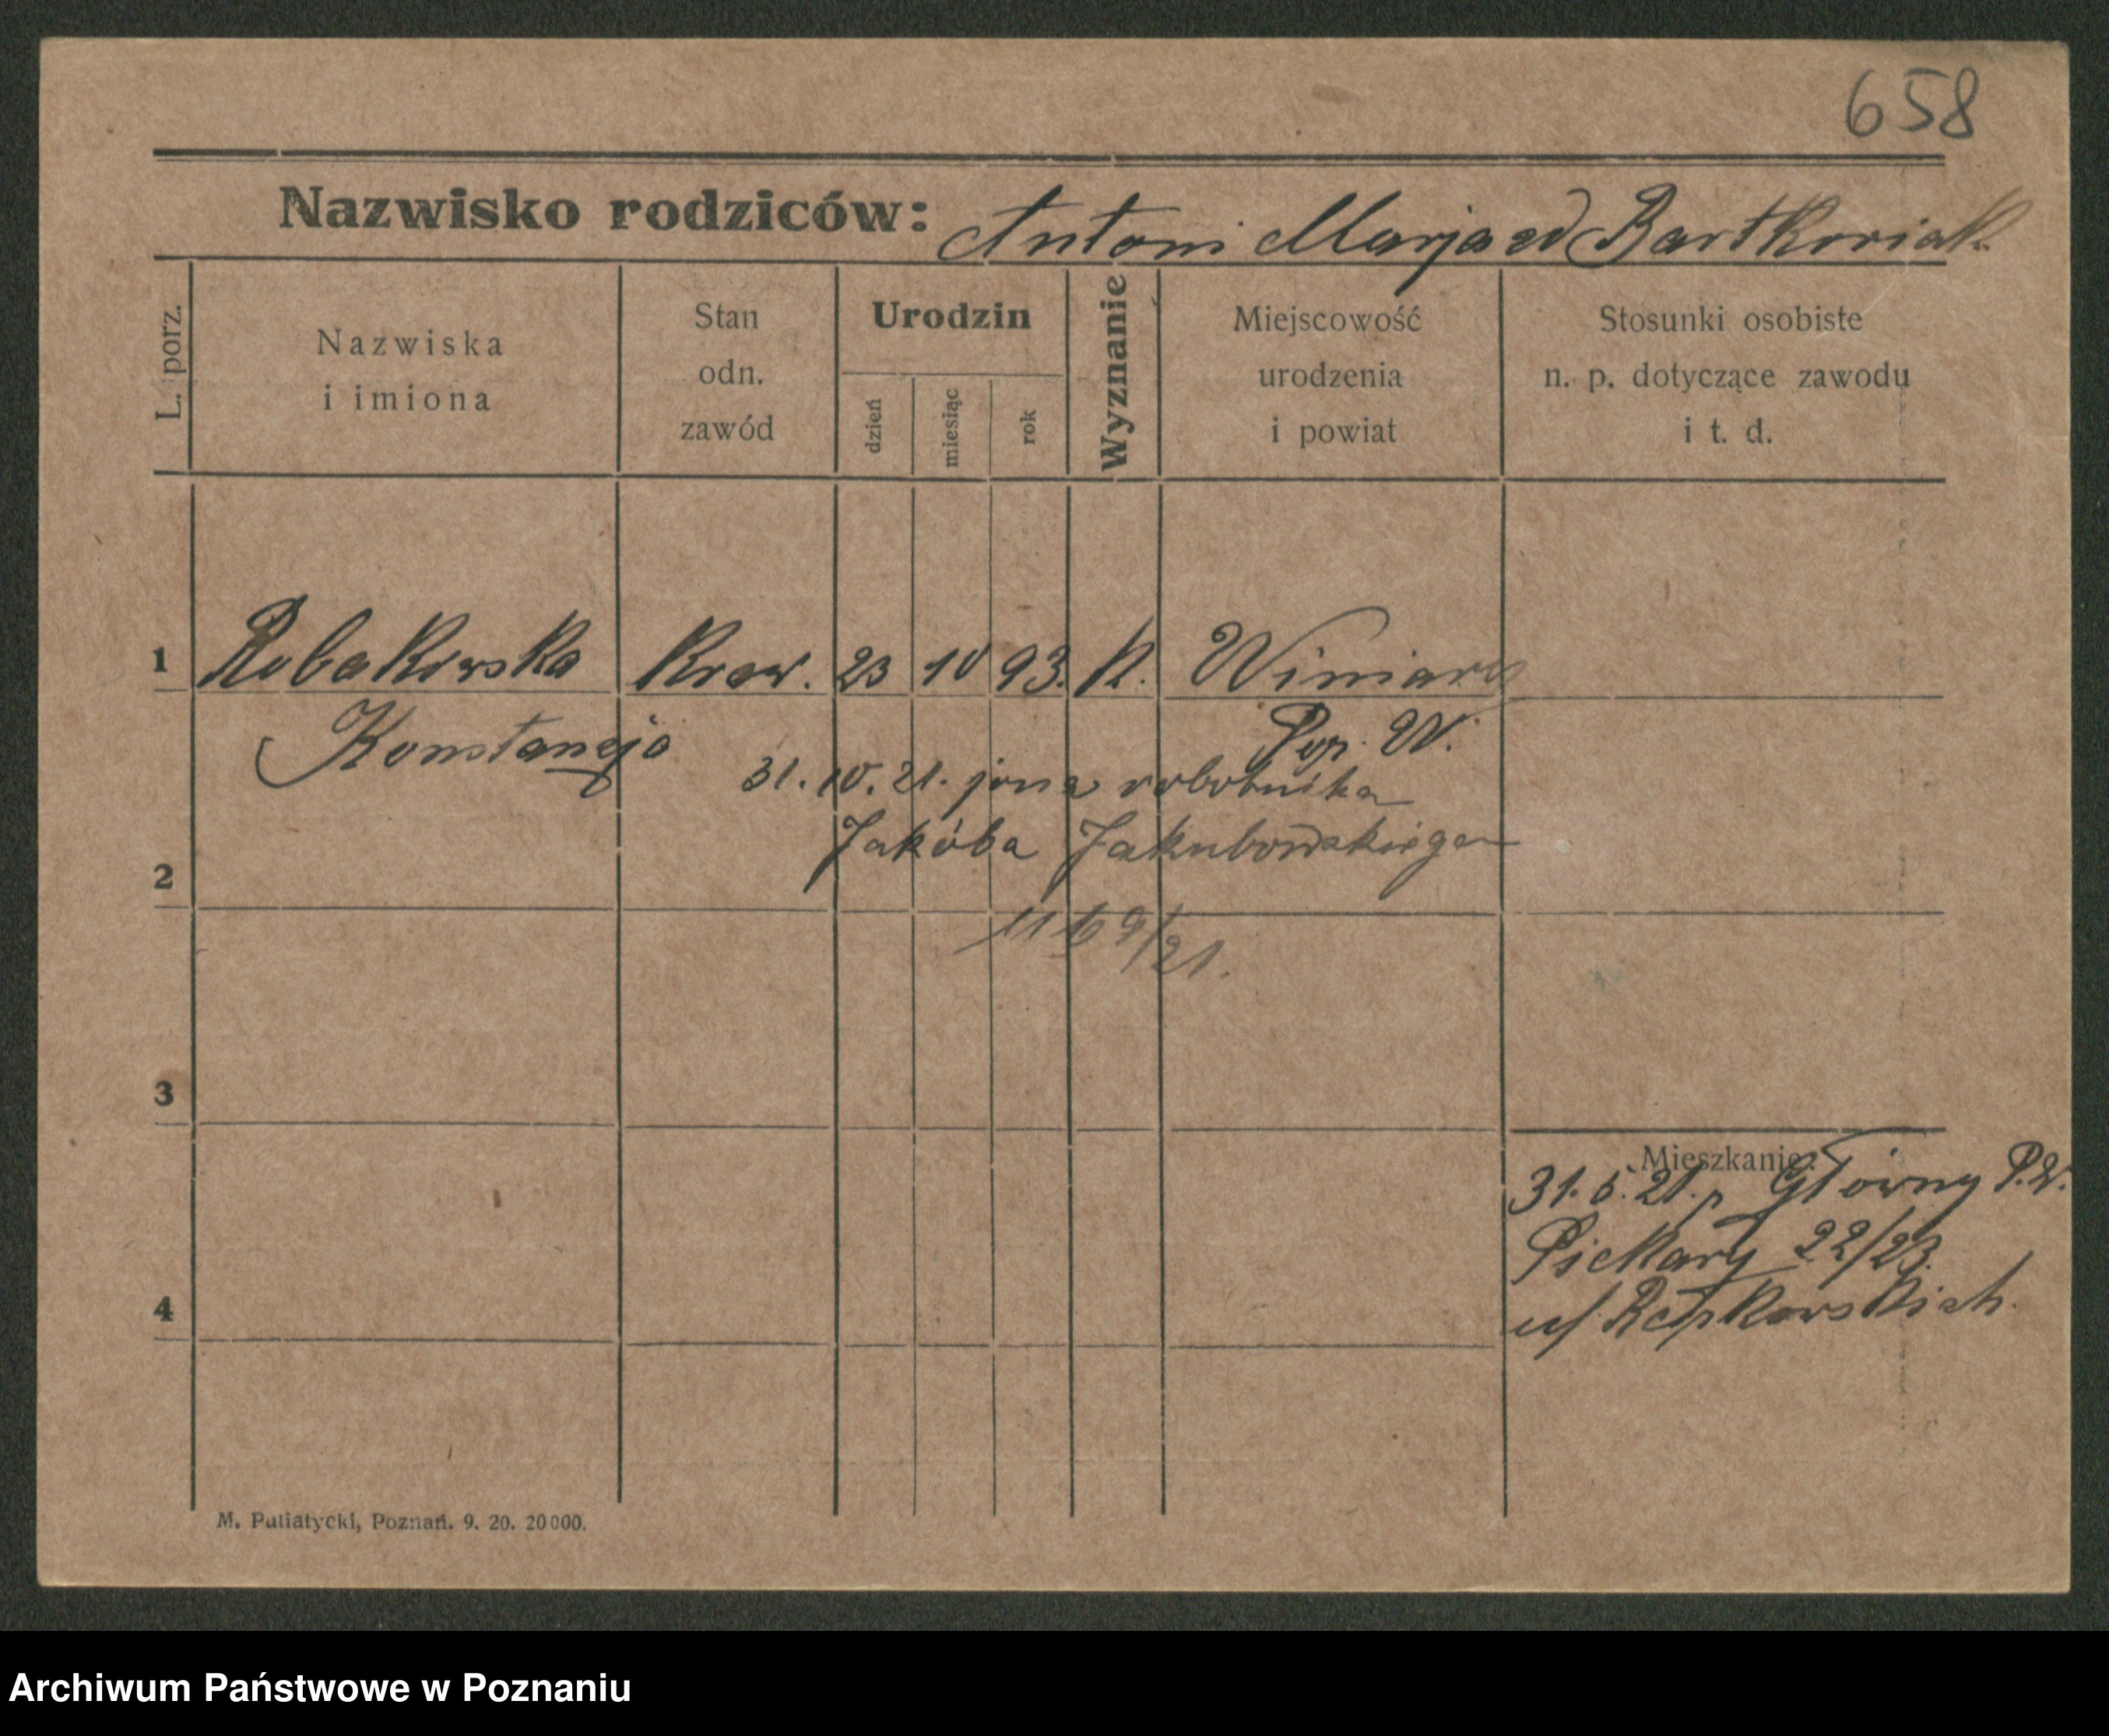 658
Nazwisko rodziców: Antoni Marja zd Bartkowiak.
L. porz.
Nazwiska
i imiona
Stan
odn.
zawód
Urodzin
dzień
miesiąc
rok
Wyznanie
Miejscowość
urodzenia
i powiat
Stosunki osobiste
n. p. dotyczące zawodu
i t. d.
1 Robakowska Kraw. 23 10 93. K. Winiary
Konstancja
31. 10. 21. żona robotnika
Jakóba Jakubowskiego
2
1169/21.
3
Mieszkanie:
31. 5. 21. Główny
Piekary 22/23.
u/ Repkowskich.
4
M. Putiatycki, Poznań. 9. 20. 20000.
Archiwum Państwowe w Poznaniu